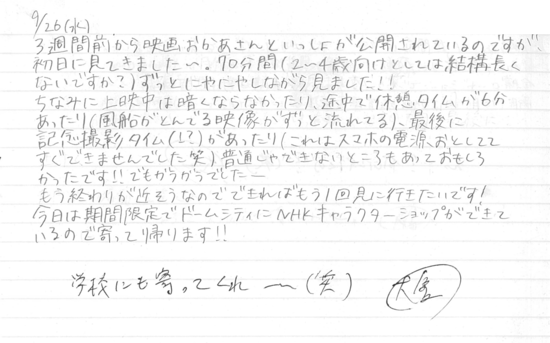 9/26(水)
3週間前から映画おかあさんといっしょが公開されているのですが、
初日に見てきました〜。70分間(2〜4歳向けとしては結構長く
ないですか?)ずっとにやにやしながら見ました!!
ちなみに上映中は暗くならなかったり、途中で休憩タイムが6分
あったり(風船がとんでる映像がずっと流れてる)、最後に
記念撮影タイム(!?)があったり(これはスマホの電源、おとしてて
すぐできませんでした笑)普通じゃできないところもあっておもしろ
かったです!!でもガラガラでした—
もう終わりが近そうなのでできればもう1回見に行きたいです!
今日は期間限定でドームシティにNHKキャラクターショップができて
いるので寄って帰ります!!
学校にも寄ってくれ〜(笑)